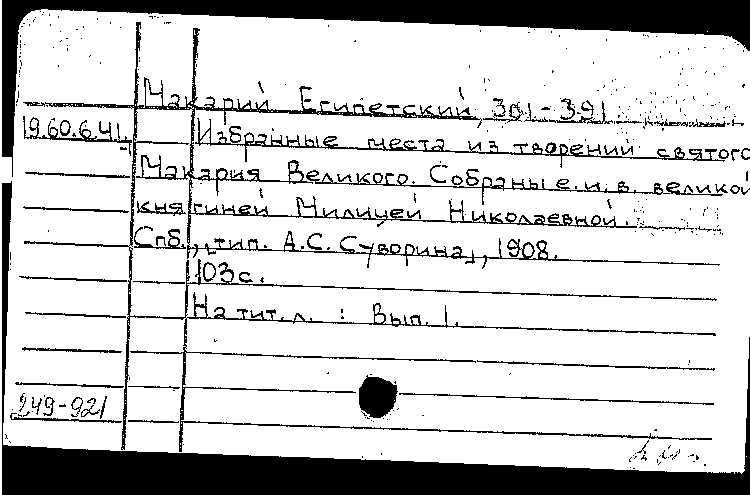 Макарий Египетский, 301-391.
19.60.6.41. Избранные места из творений святого
Макария Великого. Собраны е.и.в. великой
княгиней Милицей Николаевной.
Спб., [тип. А.С. Суворина], 1908.
103 с.
На тит.л. : Вып. 1.
249-921